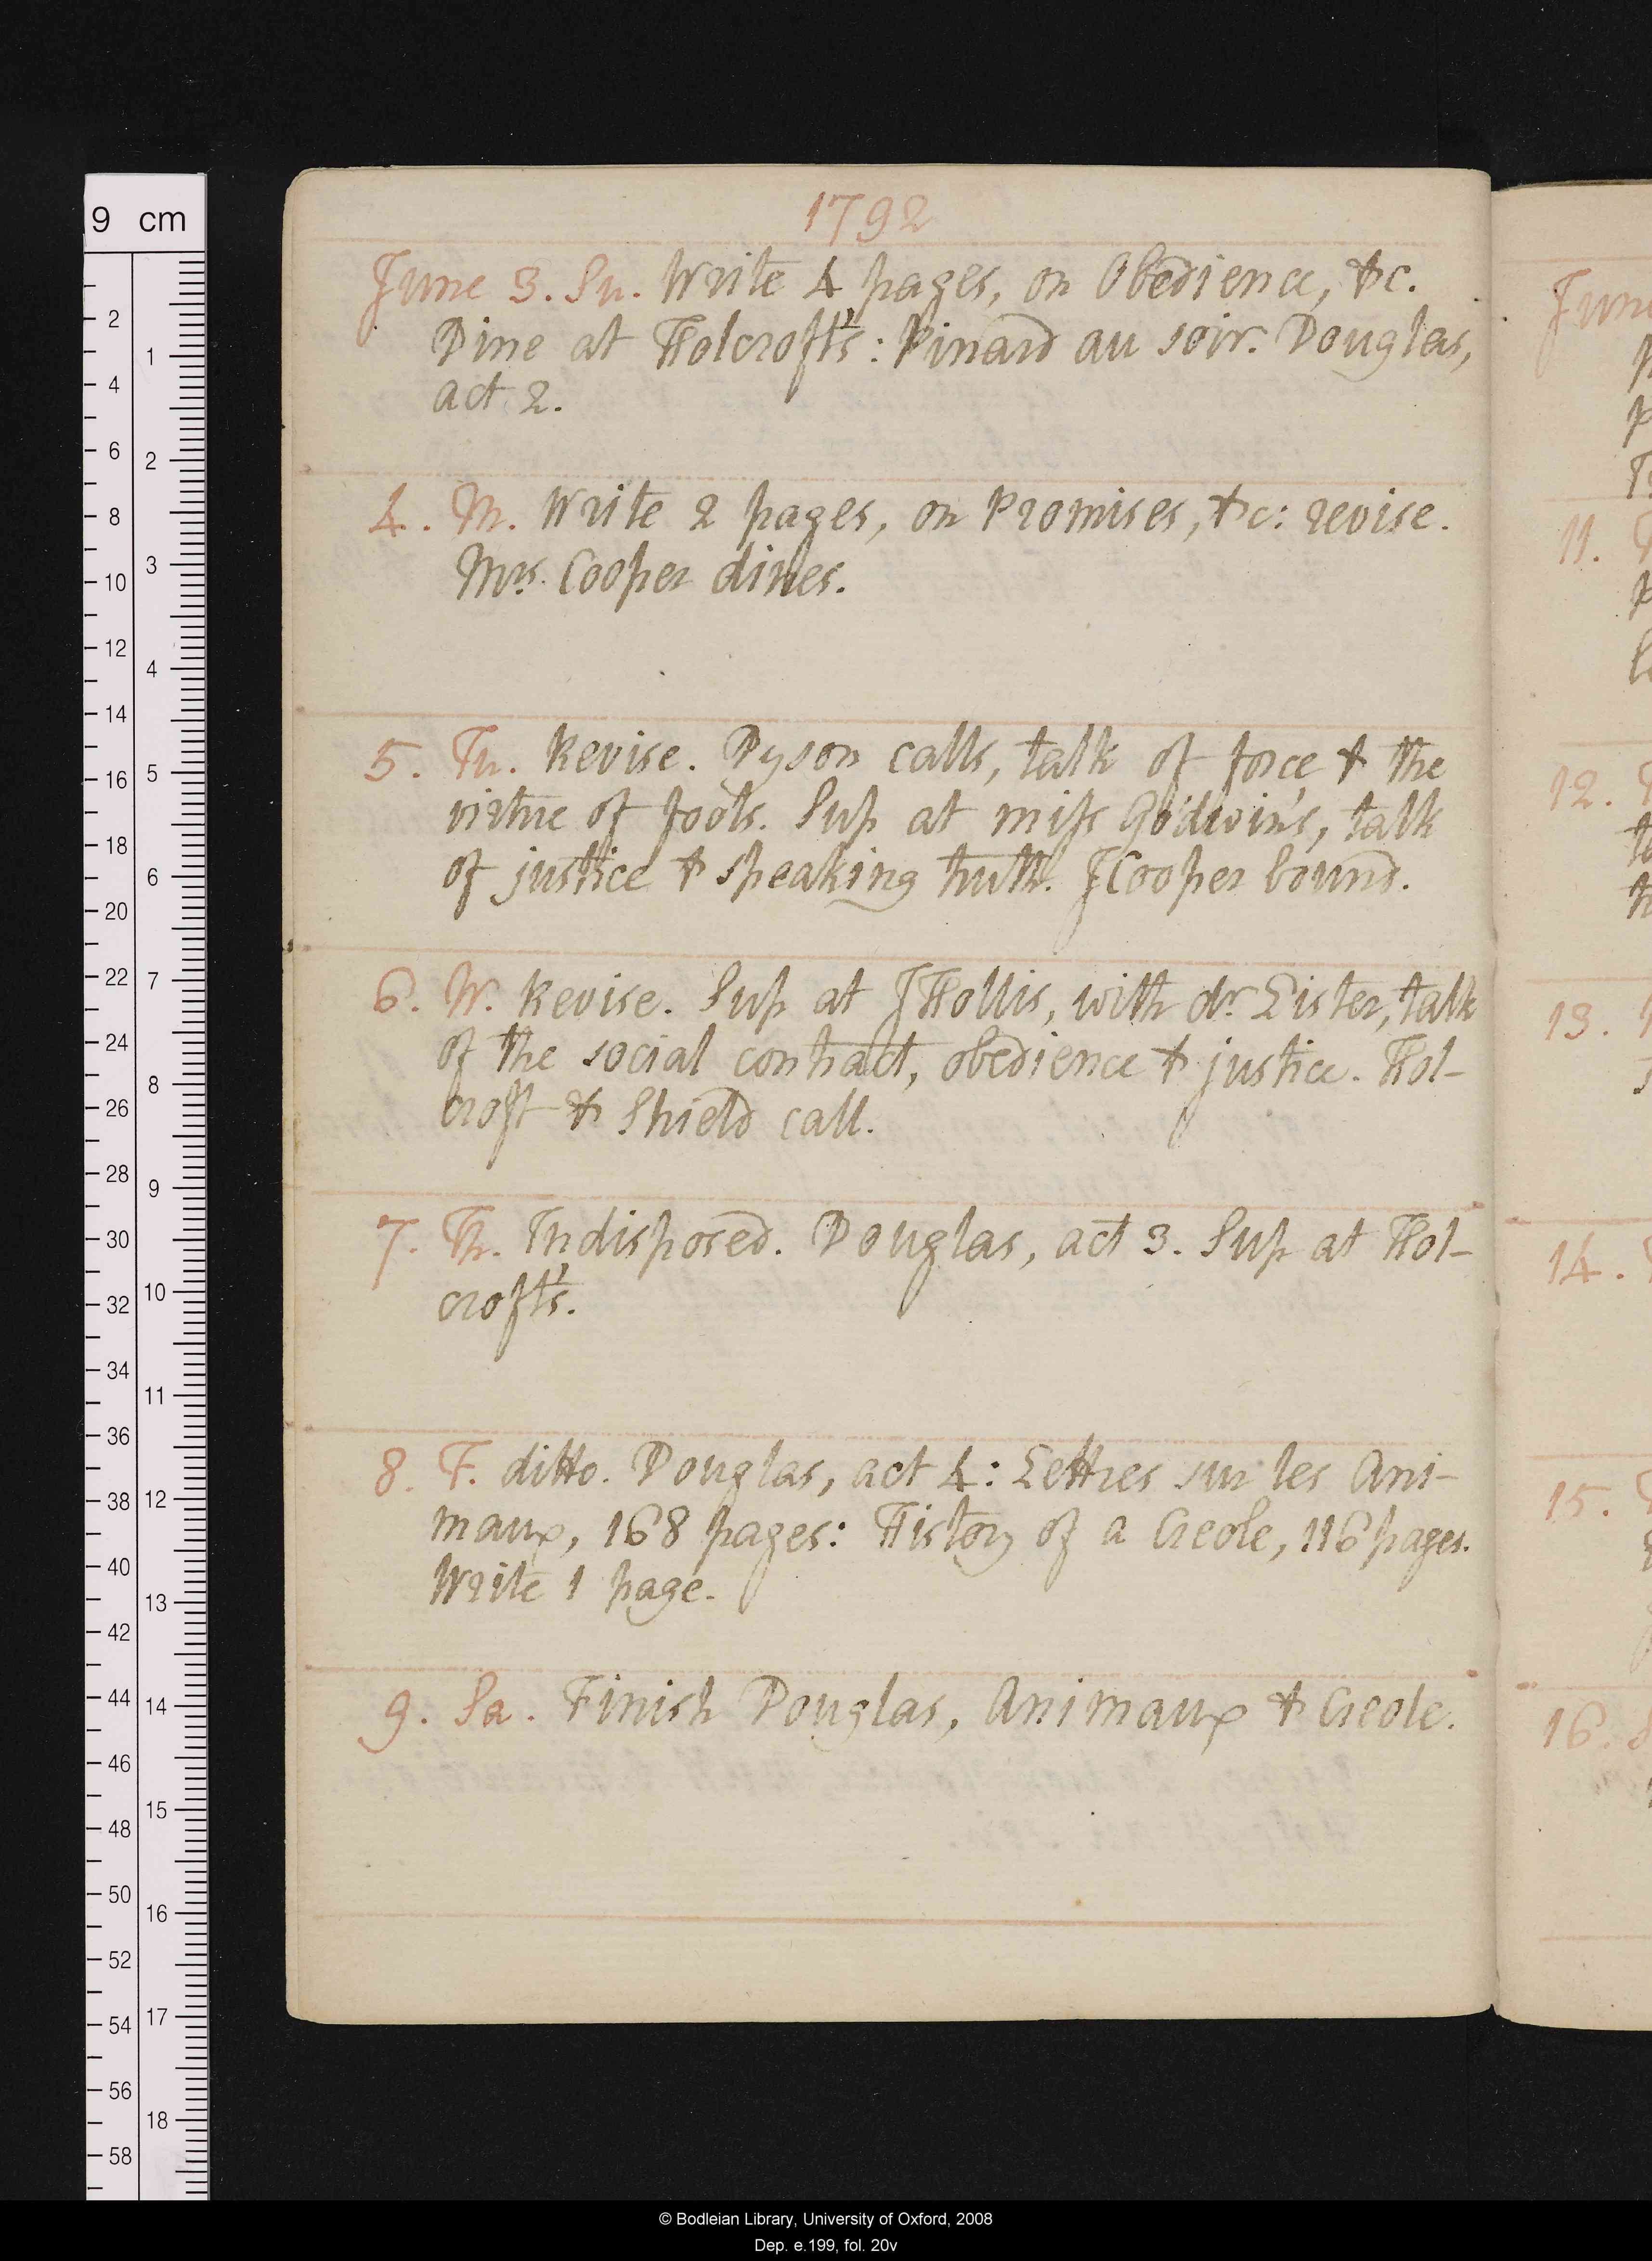 1792
June 3. Su. Write 4 pages, on Obedience, &c.
Dine at Holcroft's: Pinard au soir. Douglas,
act 2.
4. M. Write 2 pages, on Promises, &c: revise.
Mrs. Cooper dines.
5. Tu. Revise. Dyson calls, talk of force & the
virtue of fools. Sup at miss Godwin's, talk
of justice & speaking truth. J Cooper bound.
6. W. Revise. Sup at J Hollis, with dr. Lister, talk
of the social contract, obedience & justice. Hol-
croft & Shield call.
7. Th. Indisposed. Douglas, act 3. Sup at Hol-
croft's.
8. F. ditto. Douglas, act 4: Lettres sur les Ani-
maux, 168 pages: History of a Creole, 116 pages.
Write 1 page.
9. Sa. Finish Douglas, Animaux & Creole.
June
11.
12.
13.
14.
15.
16.
9 cm
2
4
6
8
10
12
14
16
18
20
22
24
26
28
30
32
34
36
38
40
42
44
46
48
50
52
54
56
58
1
2
3
4
5
6
7
8
9
10
11
12
13
14
15
16
17
18
© Bodleian Library, University of Oxford, 2008
Dep. e.199, fol. 20v